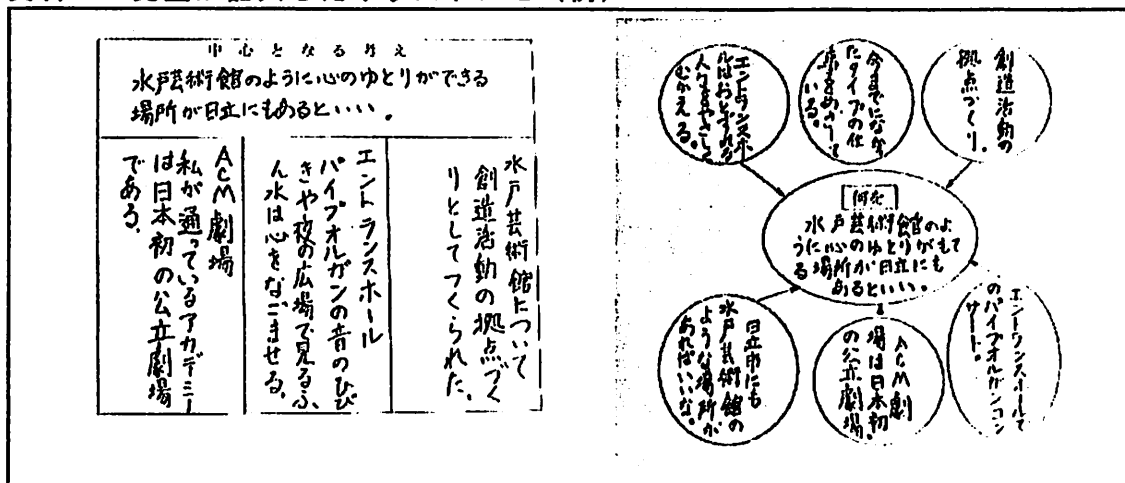 中心となる考え
水戸芸術館のように心のゆとりができる
場所が日立にもあるといい。
水戸芸術館について
創造活動の拠点づく
りとしてつくられた。
エントランスホール
パイプオルガンの音のひび
きや夜の広場で見るふ
ん水は心をなごませる。
ACM劇場
私が通っているアカデミー
は日本初の公立劇場
である。
創造活動の
拠点づくり。
今までにな
たタイプの仕
いる。
エントランスホー
ルはおとずれる
人々をやさしく
むかえる。
何を
水戸芸術館のよ
うに心のゆとりがもて
る場所が日立にも
あるといい。
日立市にも
水戸芸術館の
ような場所が
あればいいな。
ACM劇
場は日本初
の公立劇場。
エントランスホールで
のパイプオルガンコン
サート。